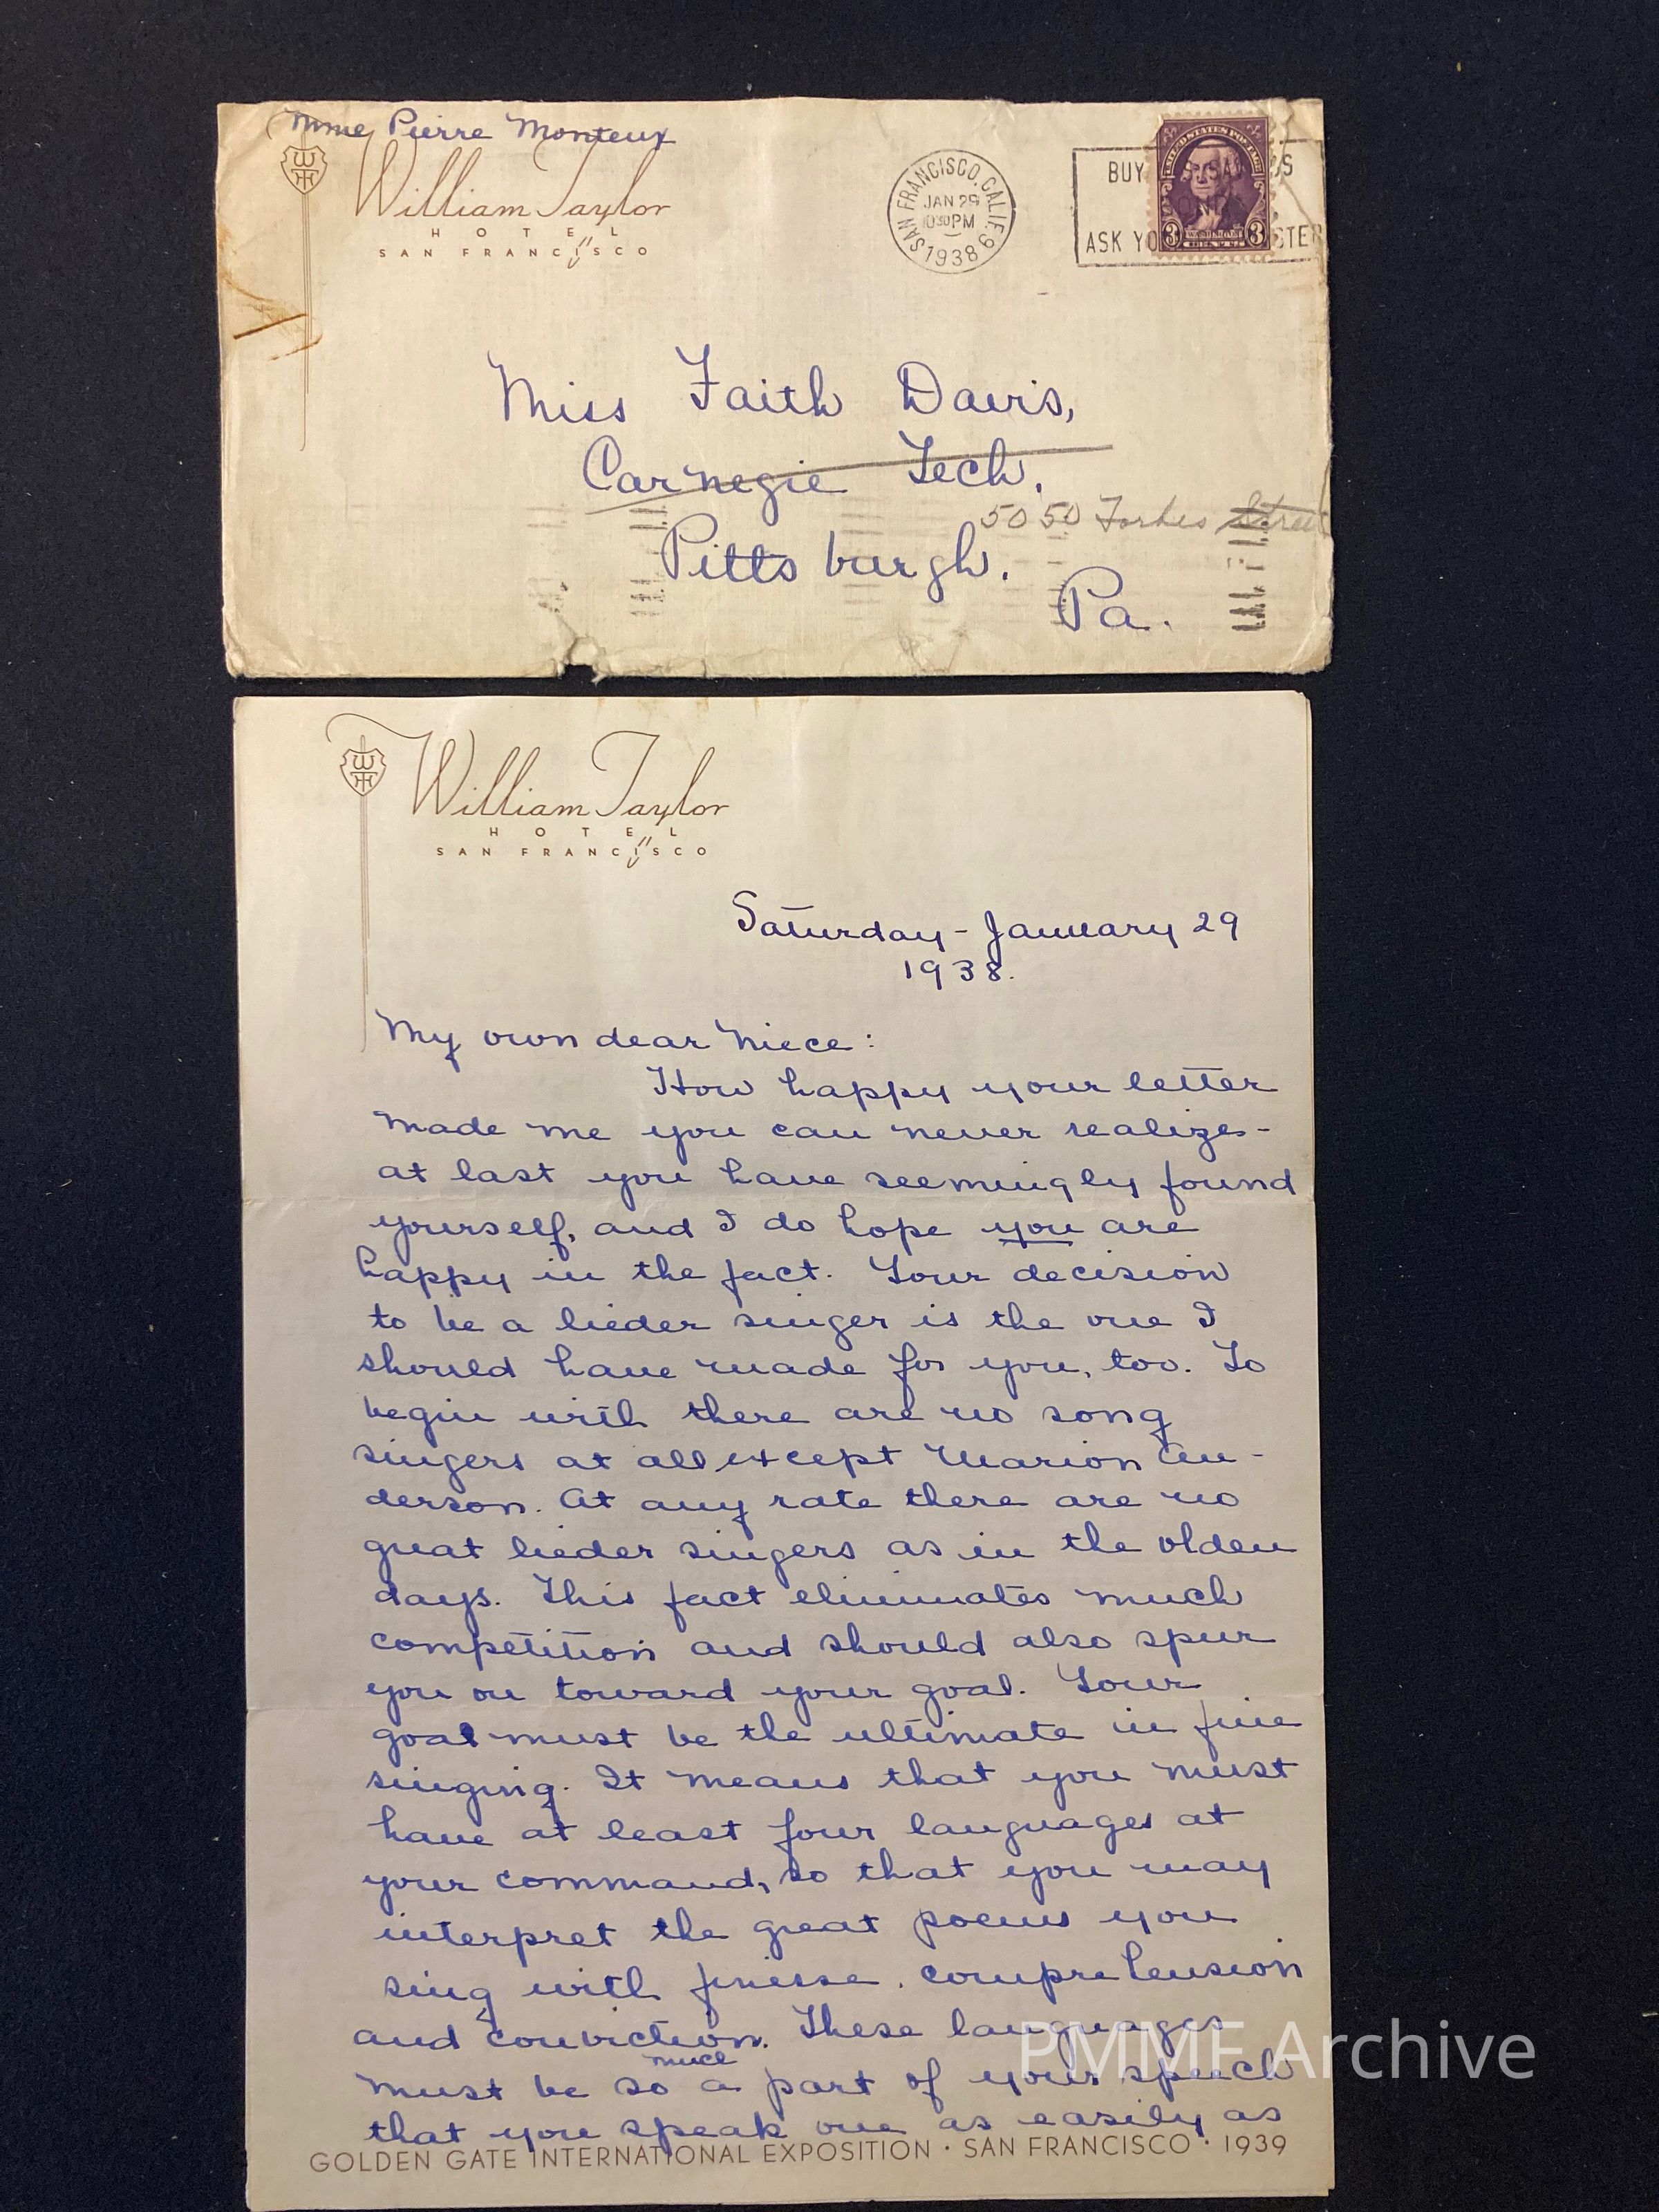 Mme Pierre Monteux
William Taylor
HOTEL
SAN FRANCISCO
SAN FRANCISCO, CALIF. 9
JAN 29
10 30 PM
1938
BUY
ASK YO
UNITED STATES POSTAGE
3 3
Miss Faith Davis,
Carnegie Tech.
5050 Forbes Street
Pittsburgh.
Pa.
William Taylor
HOTEL
SAN FRANCISCO
Saturday - January 29
1938.
My own dear Niece:
How happy your letter
made me you can never realize -
at last you have seemingly found
yourself, and I do hope you are
happy in the fact. Your decision
to be a lieder singer is the one I
should have made for you, too. To
begin with there are no song
singers at all except Marion An-
derson. At any rate there are no
great lieder singers as in the olden
days. This fact eliminates much
competition and should also spur
you on toward your goal. Your
goal must be the ultimate in fine
singing. It means that you must
have at least four languages at
your command, so that you may
interpret the great poems you
sing with finesse, comprehension
and conviction. These languages
must be so much a part of your speech
that you speak one as easily as
GOLDEN GATE INTERNATIONAL EXPOSITION · SAN FRANCISCO · 1939
PMMF Archive